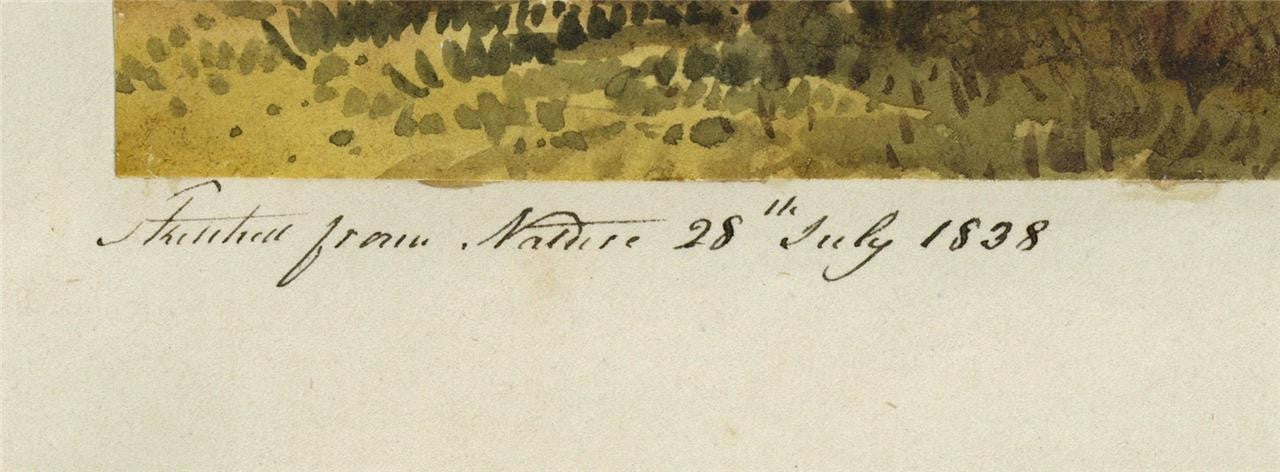 Sketched from Nature 28th July 1838